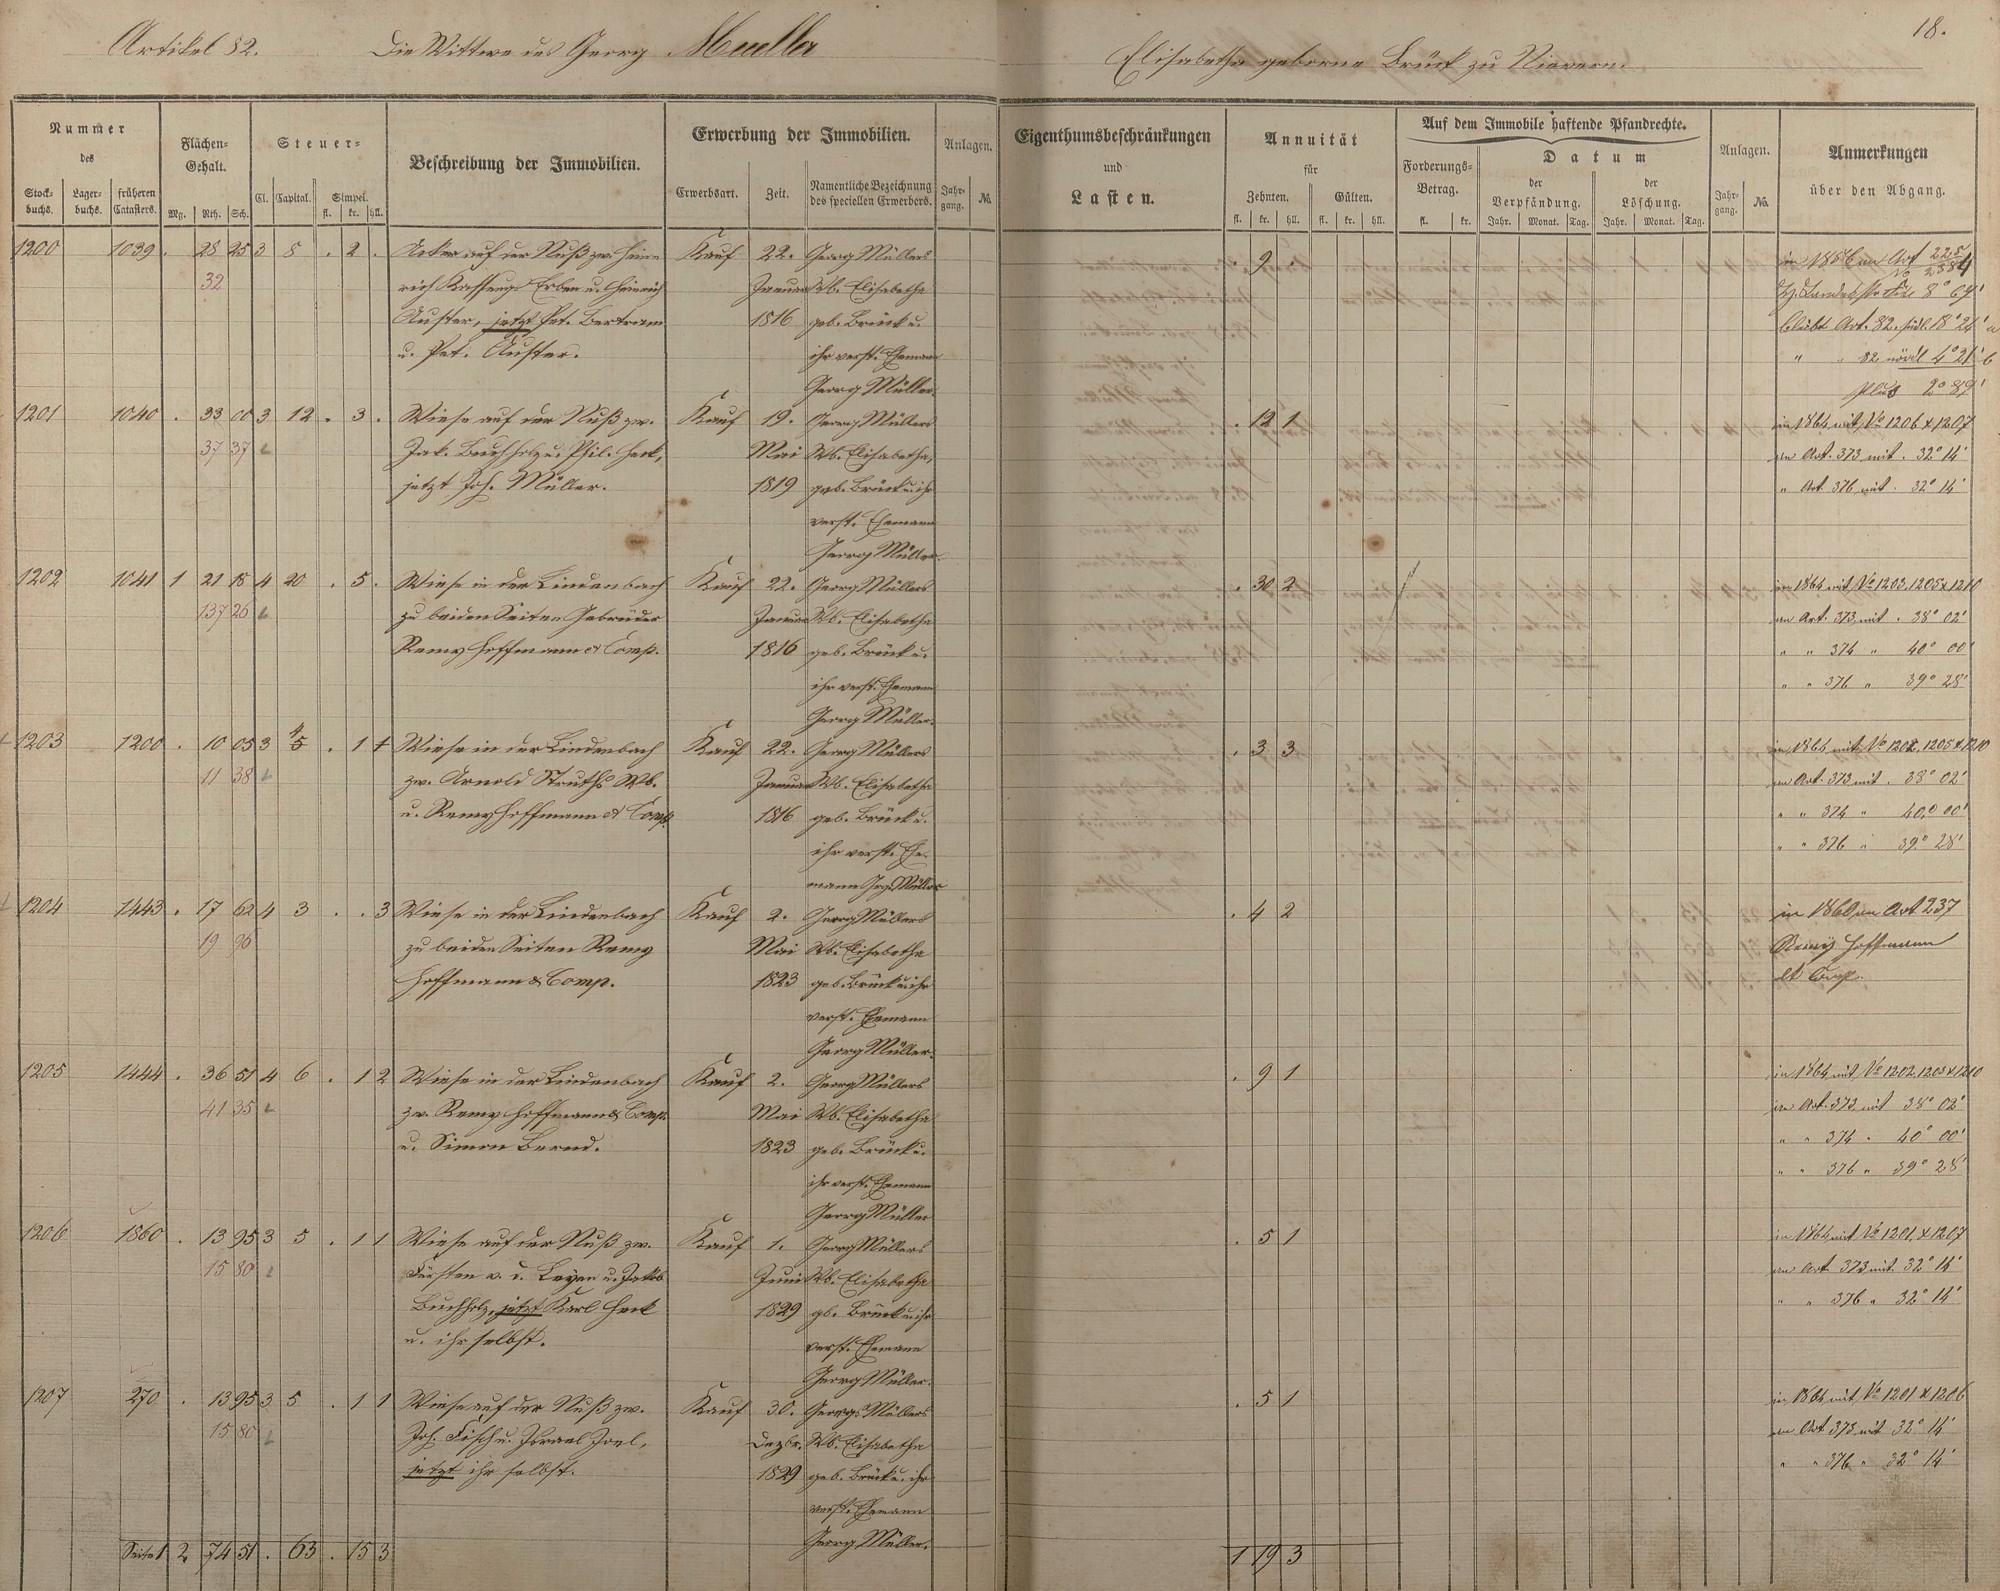 Artikel 82. Die Wittwe des Georg Mueller Elisabetha geborne Brück zu Nievern. 18.
Nummer des
Stockbuchs. Lagerbuchs. früheren Catasters.
Flächen-Gehalt.
Mg. Rth. Sch.
Steuer-
Cl. Capital. Simpel.
fl. kr. hll.
Beschreibung der Immobilien.
Erwerbung der Immobilien.
Erwerbsart. Zeit. Namentliche Bezeichnung des speciellen Erwerbers.
Anlagen.
Jahrgang. No.
Eigenthumsbeschränkungen
und
Lasten.
Annuität
für
Zehnten. Gülten.
fl. kr. hll. fl. kr. hll.
Auf dem Immobile haftende Pfandrechte.
Forderungs-Betrag.
fl. kr.
Datum
der Verpfändung. der Löschung.
Jahr. Monat. Tag. Jahr. Monat. Tag.
Anlagen.
Jahrgang. No.
Anmerkungen
über den Abgang.
1200 1039 . 28 25 3 8 . 2 . Acker auf der Nuß zw. Hein- Kauf 22. Georg Müllers . 9 . in 1856 an Art 225
32 rich Kaffungs Erben u. Heinrich Januar Wb. Elisabetha No 2384
Auster, jetzt Pet. Bertram 1816 geb. Brück u. 8° 67'
u. Pet. Auster. ihr verst. Ehemann bleibt Art. 82. südl. 18° 24' a
Georg Müller. " " 82 nördl 4° 21' b
Plus 2° 87'
1201 1040 . 33 00 3 12 . 3 . Wiese auf der Nuß zw. Kauf 19. Georg Müllers . 12 1 in 1864 mit No 1206 & 1207
37 37 Jak. Buchholz u. Phil. Heck, Mai Wb. Elisabetha, an Art. 373 mit . 32° 14'
jetzt Joh. Müller. 1819 geb. Brück u. ihr " Art. 376 mit . 32° 14'
verst. Ehemann
Georg Müller.
1202 1041 1 21 18 4 20 . 5 . Wiese in der Lindenbach Kauf 22. Georg Müllers . 30 2 in 1864 mit No 1203. 1205 & 1210
137 26 zu beiden Seiten Gebrüder Januar Wb. Elisabetha an Art. 373 mit . 38° 02'
Remy Hoffmann & Comp. 1816 geb. Brück u. " " 374 " 40° 00'
ihr verst. Ehemann " " 376 " 39° 28'
Georg Müller.
1203 1200 . 10 05 3 5 . 1 1 Wiese in der Lindenbach Kauf 22. Georg Müllers . 3 3 in 1864 mit No 1202. 1205 & 1210
11 38 zw. Arnold Struths Wb. Januar Wb. Elisabetha an Art. 373 mit . 38° 02'
u. Remy Hoffmann & Comp. 1816 geb. Brück u. " " 374 " 40° 00'
ihr verst. Ehe- " " 376 " 39° 28'
mann Grg. Müller
1204 1443 . 17 62 4 3 . . 3 Wiese in der Lindenbach Kauf 2. Georg Müllers . 4 2 in 1860 an Art 237
19 96 zu beiden Seiten Remy Mai Wb. Elisabetha Remy Hoffmann
Hoffmann & Comp. 1823 geb. Brück u. ihr et Comp.
verst. Ehemann
Georg Müller.
1205 1444 . 36 51 4 6 . 1 2 Wiese in der Lindenbach Kauf 2. Georg Müllers . 9 1 in 1864 mit No 1202. 1203 & 1210
41 35 zw. Remy Hoffmann & Comp. Mai Wb. Elisabetha an Art. 373 mit 38° 02'
u. Simon Bernd. 1823 geb. Brück u. " " 374 " 40° 00'
ihr verst. Ehemann " " 376 " 39° 28'
Georg Müller
1206 1860 . 13 95 3 5 . 1 1 Wiese auf der Nuß zw. Kauf 1. Georg Müllers . 5 1 in 1864 mit No 1201 & 1207
15 80 Fürsten v. d. Leyen u. Jakob Juni Wb. Elisabetha an Art. 373 mit. 32° 14'
Buchholz, jetzt Karl Heck 1829 gb. Brück u. ihr " " 376 " 32° 14'
u. ihr selbst. verst. Ehemann
Georg Müller.
1207 270 . 13 95 3 5 . 1 1 Wiese auf der Nuß zw. Kauf 30. Georgs Müllers . 5 1 in 1864 mit No 1201 & 1206
15 80 Joh. Fisch u. Israel Joel, Dezbr. Wb. Elisabetha an Art 373 mit 32° 14'
jetzt ihr selbst. 1829 geb. Brück u. ihr " " 376 " 32° 14'
verst. Ehemann
Georg Müller.
Seite 1 2 74 51 . 63 . 15 3 1 19 3